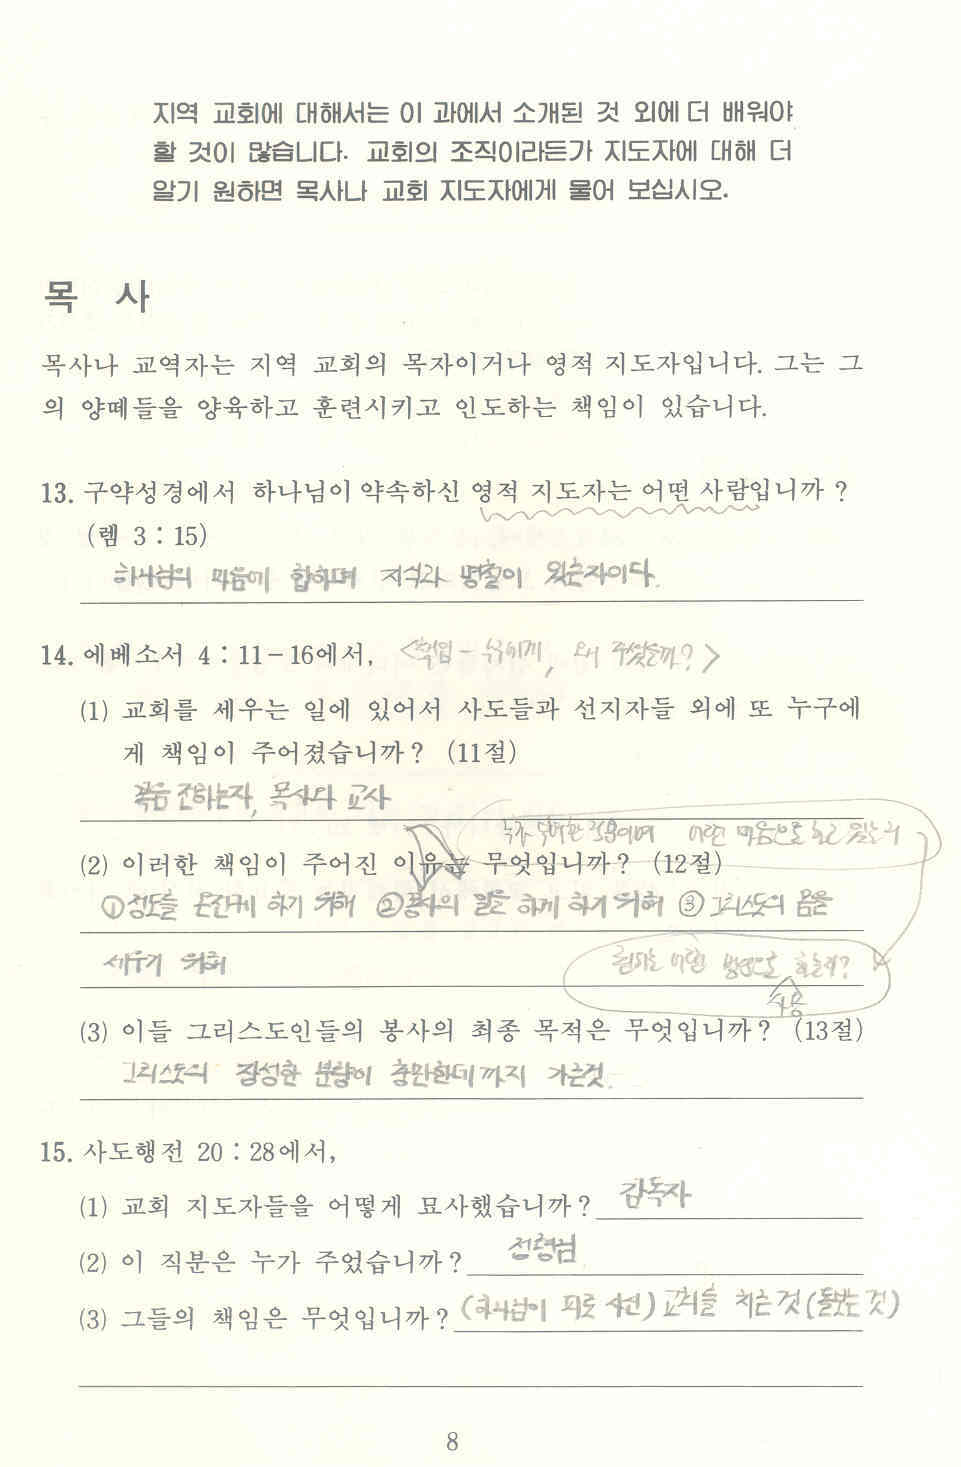 지역 교회에 대해서는 이 과에서 소개된 것 외에 더 배워야
할 것이 많습니다. 교회의 조직이라든가 지도자에 대해 더
알기 원하면 목사나 교회 지도자에게 물어 보십시오.
목 사
목사나 교역자는 지역 교회의 목자이거나 영적 지도자입니다. 그는 그
의 양떼들을 양육하고 훈련시키고 인도하는 책임이 있습니다.
13. 구약성경에서 하나님이 약속하신 영적 지도자는 어떤 사람입니까?
(렘 3 : 15)
하나님의 마음에 합하며 지식과 명철이 있는자이다.
14. 에베소서 4 : 11-16에서, <책임 - 뉘에게, 왜 주셨는가?>
(1) 교회를 세우는 일에 있어서 사도들과 선지자들 외에 또 누구에
게 책임이 주어졌습니까? (11절)
복음 전하는자, 목사와 교사
어떤 마음으로 하고 있는지
(2) 이러한 책임이 주어진 이유는 무엇입니까? (12절)
①성도를 온전케 하기 위해 ②봉사의 일을 하게 하기 위해 ③그리스도의 몸을
세우기 위해
어떤 방법으로 하는지?
사용
(3) 이들 그리스도인들의 봉사의 최종 목적은 무엇입니까? (13절)
그리스도의 장성한 분량이 충만한데까지 가는것.
15. 사도행전 20 : 28에서,
(1) 교회 지도자들을 어떻게 묘사했습니까? 감독자
(2) 이 직분은 누가 주었습니까? 성령님
(3) 그들의 책임은 무엇입니까? (하나님이 피로 사신) 교회를 치는 것 (돌보는 것)
8